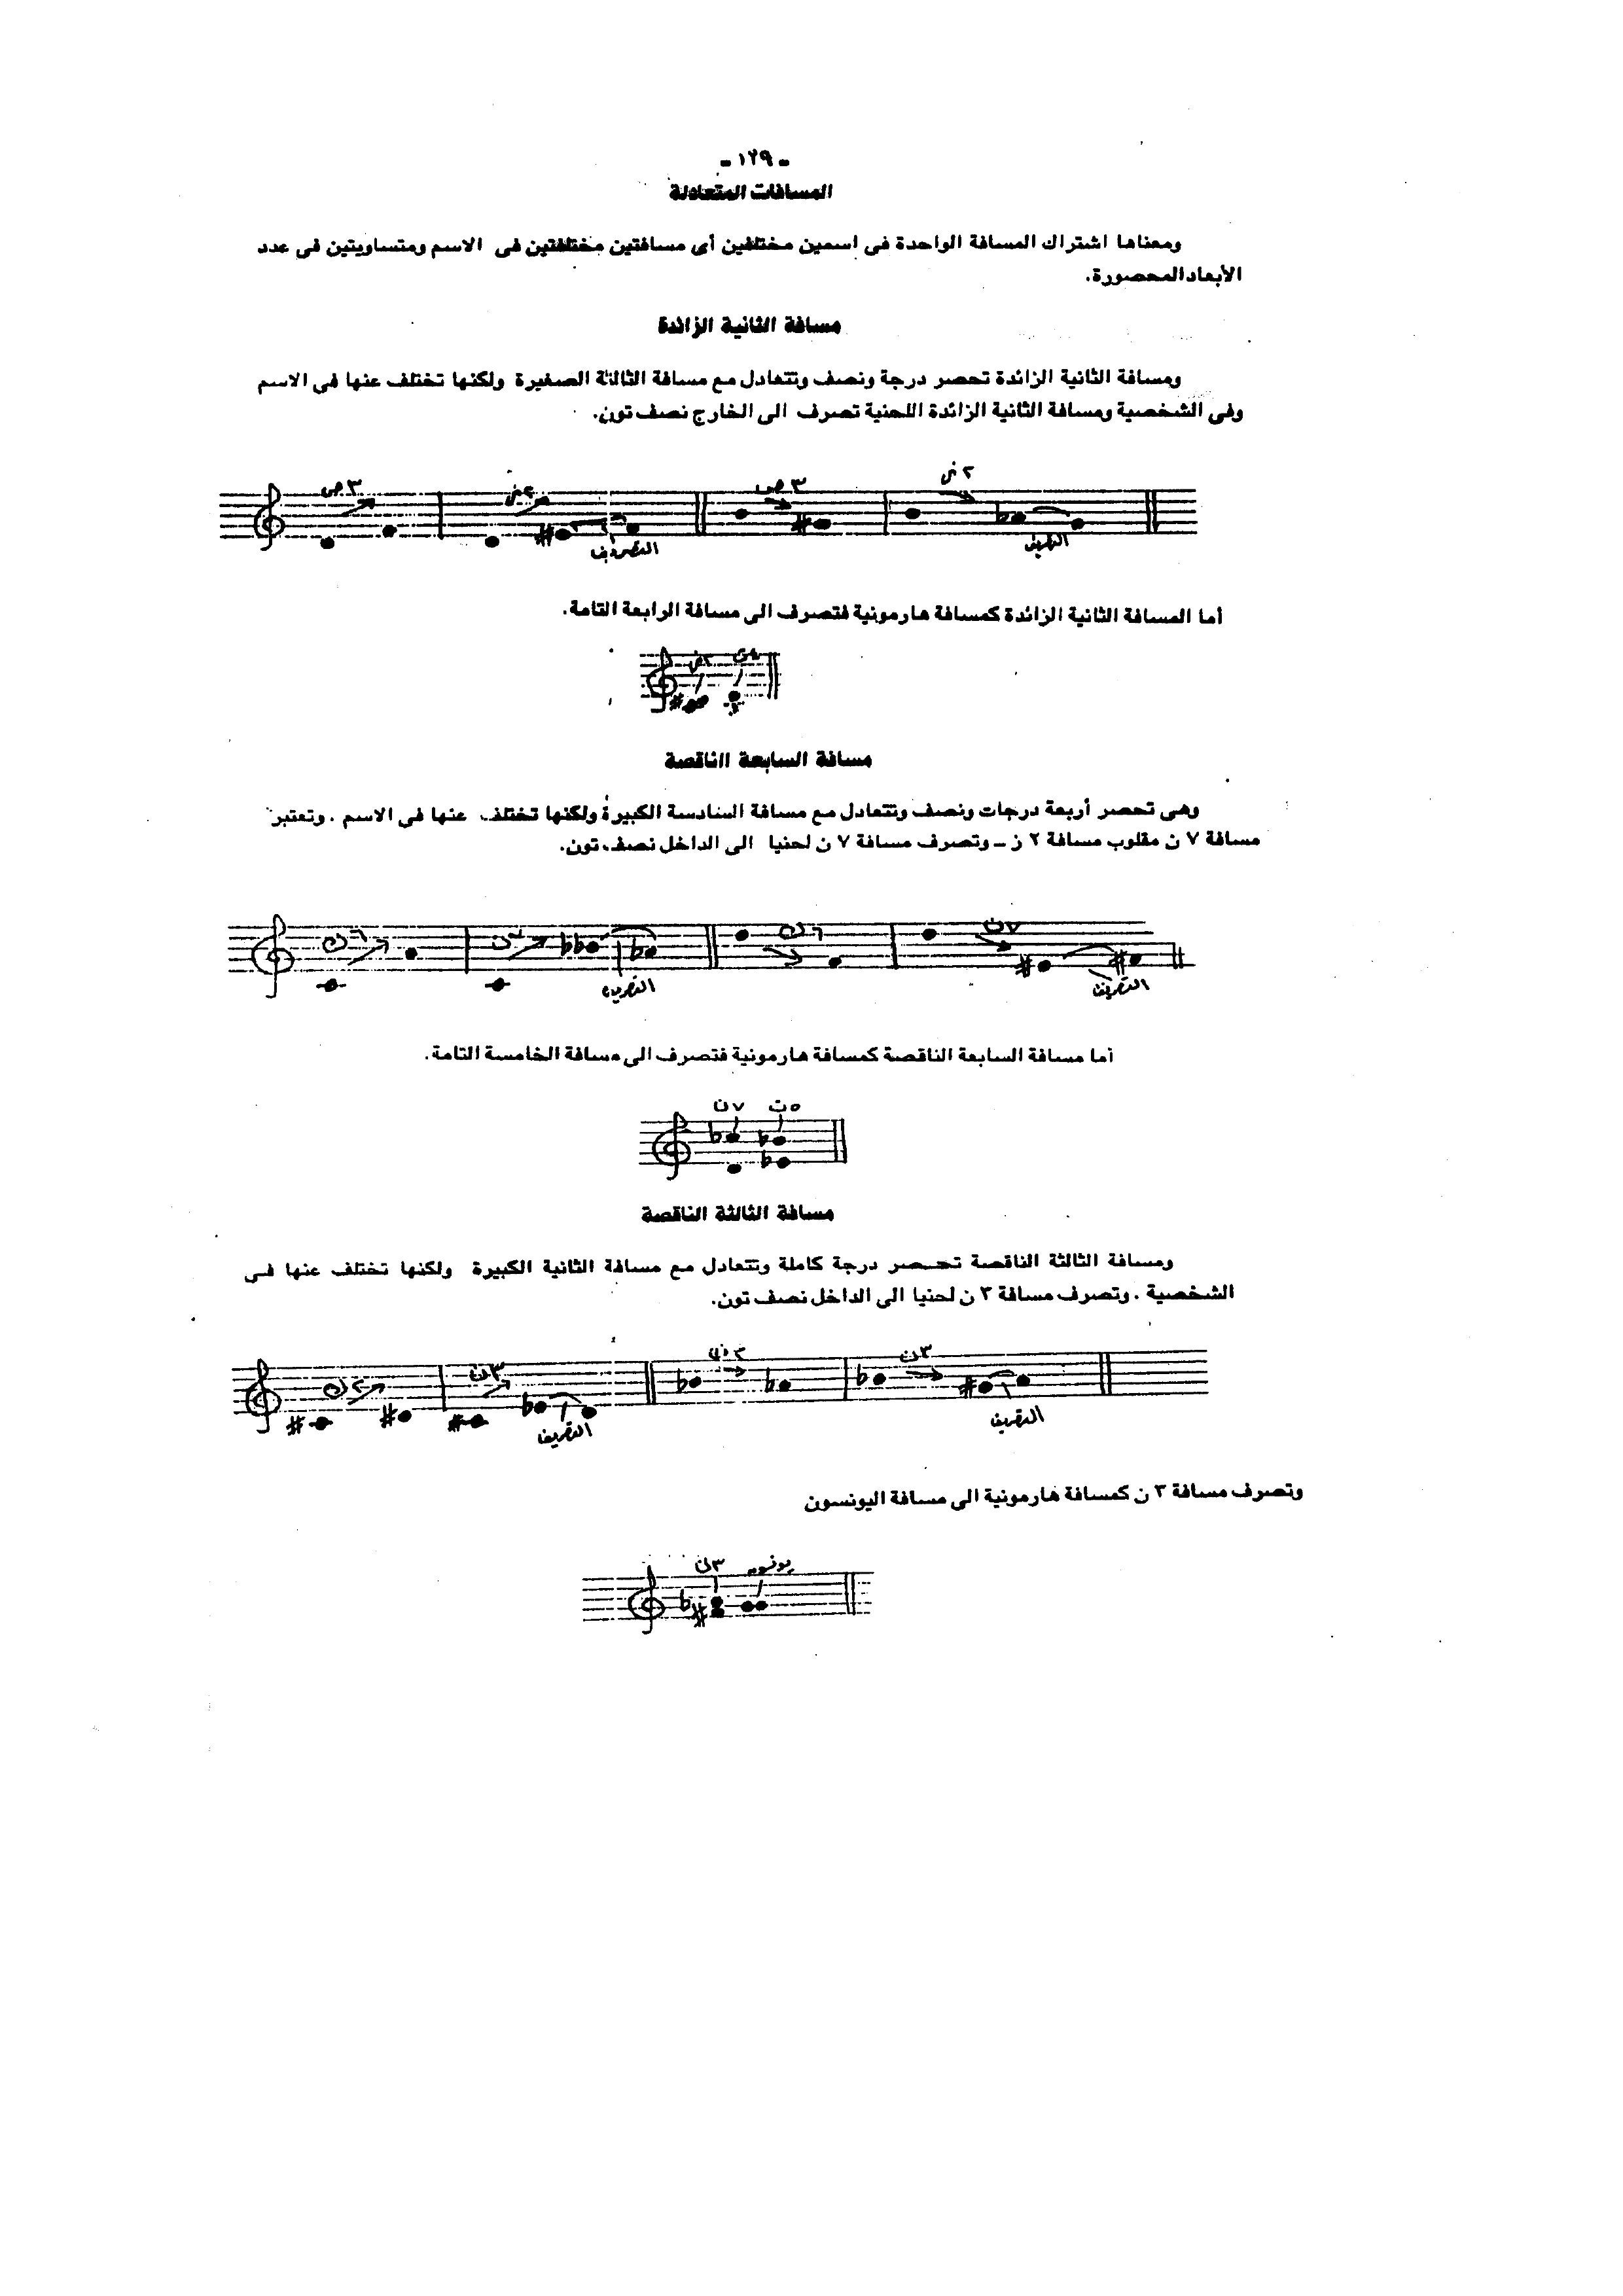 - ١٢٩ -
المسافات المتعادلة
ومعناها اشتراك المسافة الواحدة فى اسمين مختلفين أى مسافتين مختلفتين فى الاسم ومتساويتين فى عدد
الأبعاد المحصورة.
مسافة الثانية الزائدة
ومسافة الثانية الزائدة تحصر درجة ونصف وتتعادل مع مسافة الثالثة الصغيرة ولكنها تختلف عنها فى الاسم
وفى الشخصية ومسافة الثانية الزائدة اللحنية تصرف الى الخارج نصف تون.
٣ص ٢ز ٣ص ٢ز
التصريف التصريف
أما المسافة الثانية الزائدة كمسافة هارمونية فتصرف الى مسافة الرابعة التامة.
٢ز ٤ت
مسافة السابعة الناقصة
وهى تحصر أربعة درجات ونصف وتتعادل مع مسافة السادسة الكبيرة ولكنها تختلف عنها فى الاسم . وتعتبر
مسافة ٧ ن مقلوب مسافة ٢ ز – وتصرف مسافة ٧ ن لحنيا الى الداخل نصف تون.
٦ك ٦ك ٧ن
التصريف التصريف
أما مسافة السابعة الناقصة كمسافة هارمونية فتصرف الى مسافة الخامسة التامة.
٧ن ٥ت
مسافة الثالثة الناقصة
ومسافة الثالثة الناقصة تحصر درجة كاملة وتتعادل مع مسافة الثانية الكبيرة ولكنها تختلف عنها فى
الشخصية . وتصرف مسافة ٣ ن لحنيا الى الداخل نصف تون.
٢ك ٣ن ٢ك ٣ن
التصريف التصريف
وتصرف مسافة ٣ ن كمسافة هارمونية الى مسافة اليونسون
٣ن يونسون